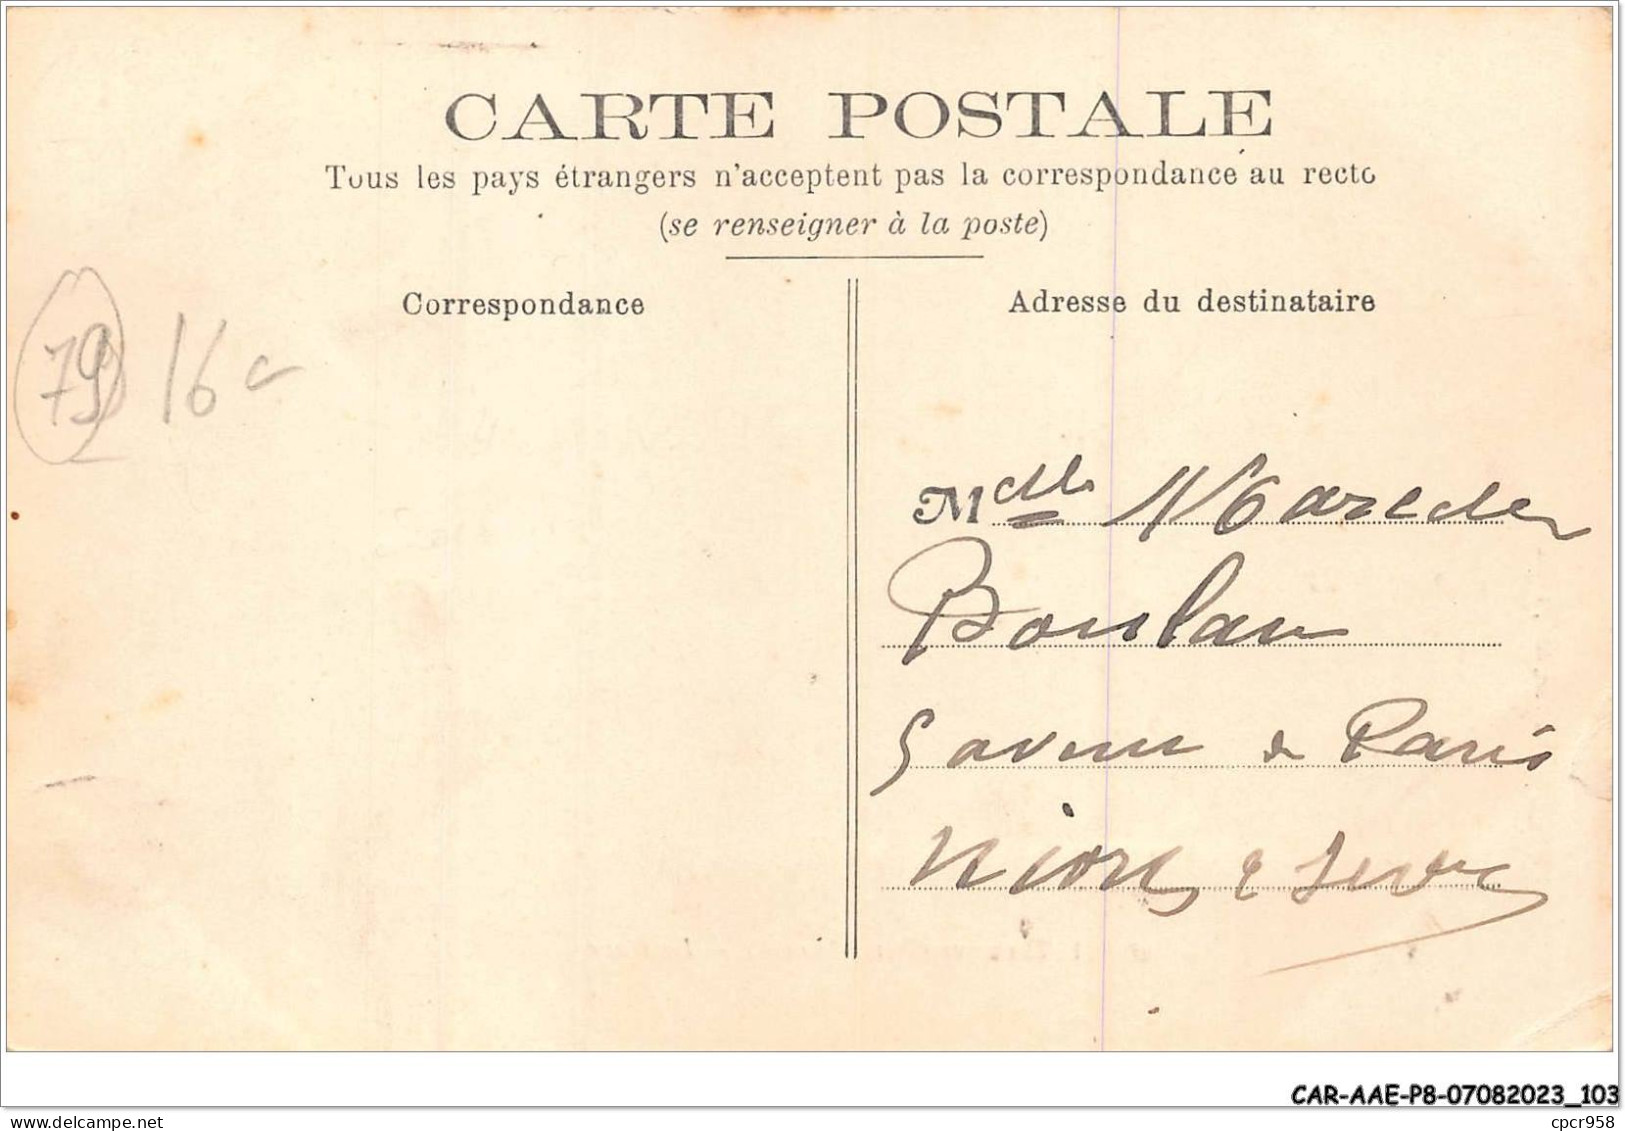 CARTE POSTALE
Tous les pays étrangers n'acceptent pas la correspondance au recto
(se renseigner à la poste)
Correspondance
Adresse du destinataire
79 16
Mdlle
Boulau
5 avenue de Paris
Niort 2 Sevres
CAR-AAE-P8-07082023_103
delcampe.net
cpcr958